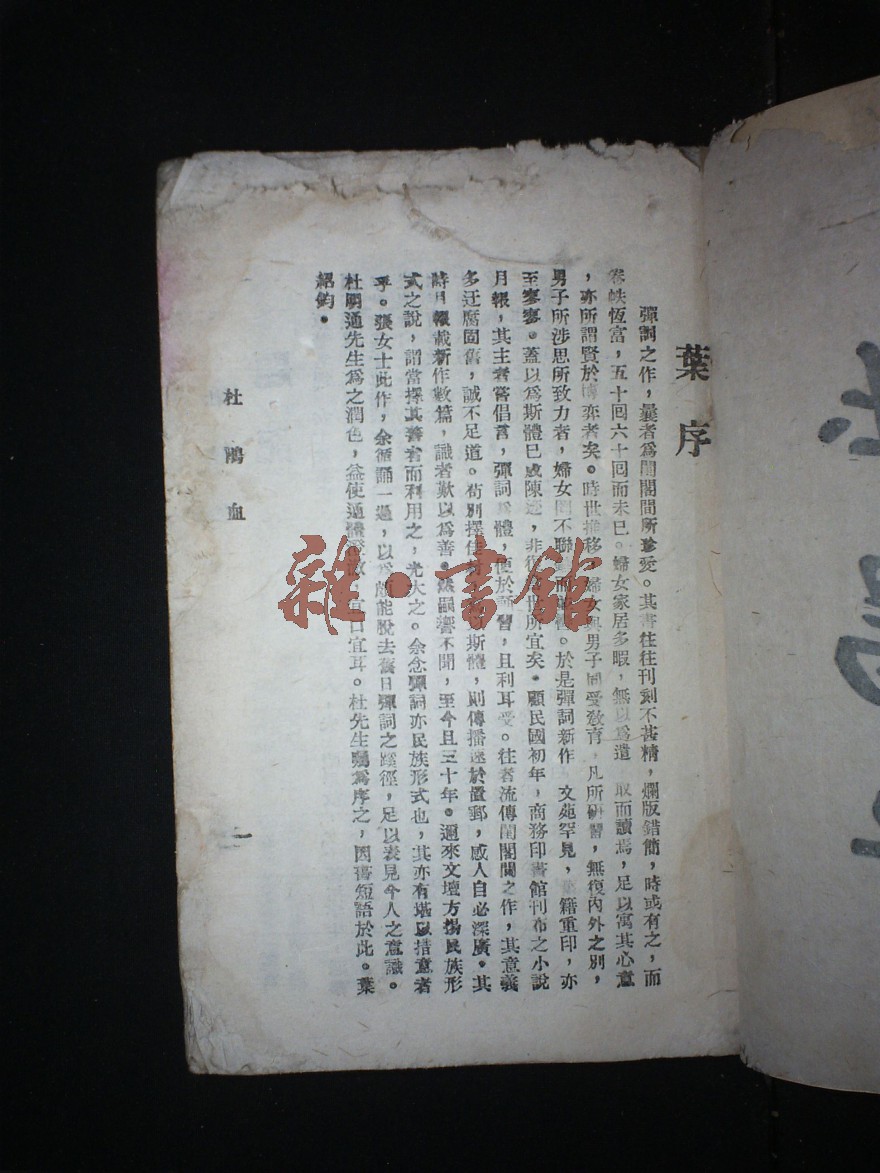 葉序
彈詞之作，曩者爲閨閣間所珍愛。其書往往刊刻不甚精，爛版錯簡，時或有之，而
卷帙恆富，五十囘六十囘而未已。婦女家居多暇，無以爲遣 取而讀焉，足以寓其心意
，亦所謂賢於博弈者矣。時世推移，婦女與男子同受敎育，凡所硏習，無復內外之別，
男子所涉思所致力者，婦女 不聯 而 。於是彈詞新作 文苑罕見， 籍重印，亦
至寥寥。蓋以爲斯體已成陳迹，非復 世所宜矣。顧民國初年，商務印書館刊布之小說
月報，其主者嘗倡言，彈詞爲體，便於 習，且利耳受。往者流傳閨閣間之作，其意義
多迂腐固舊，誠不足道。苟別擇佳 斯體，則傳播速於置郵，感人自必深廣。其
時月報載新作數篇，識者歎以爲善。然嗣響不聞，至今且三十年。邇來文壇方揚民族形
式之說，謂當擇其善者而利用之，光大之。余念彈詞亦民族形式也，其亦有堪以措意者
乎。張女士此作，余循誦一過，以爲 能脫去舊日彈詞之蹊徑，足以表見今人之意識。
杜明通先生爲之潤色，益使通體 ，宜口宜耳。杜先生囑爲序之，因書短語於此。葉
紹鈞。
杜鵑血
一
雜·書館